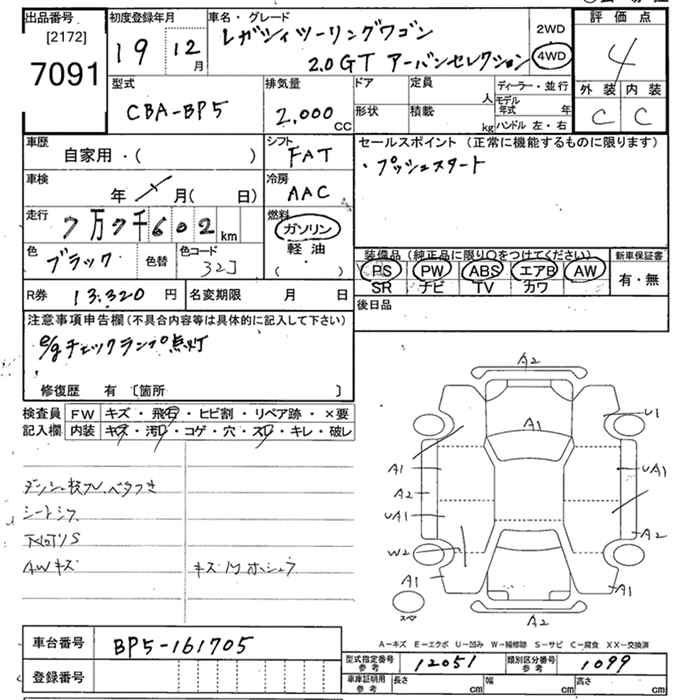 出品番号
[2172]
7091
初度登録年月
19 12月
車名・グレード
レガシィツーリングワゴン
2.0GT アーバンセレクション
2WD
4WD
評価点
4
外装 内装
C C
型式
CBA-BP5
排気量
2,000
cc
ドア
形状
定員
人
積載
kg
ディーラー・並行
モデル年式 年
ハンドル 左・右
車歴
自家用・( )
シフト
FAT
セールスポイント (正常に機能するものに限ります)
・プッシュスタート
車検
年 月( 日)
冷房
AAC
走行
7万7千602 km
燃料
ガソリン
軽油
( ・ )
色
ブラック
色替
色コード
32J
装備品 (純正品に限り〇をつけてください)
PS PW ABS エアB AW
SR ナビ TV カワ
新車保証書
有・無
R券 13,320 円
名変期限 月 日
後日品
注意事項申告欄 (不具合内容等は具体的に記入して下さい)
e/gチェックランプ点灯
修復歴 有 [箇所 ]
検査員 FW キズ・飛石・ヒビ割・リペア跡・×要
記入欄 内装 キズ・汚レ・コゲ・穴・スレ・キレ・破レ
シートシワ
下廻りS
AWキズ
A2
A1
U1
A1
A2
UA1
W2
A1
UA1
A2
A1
A2
スペ
A-キズ E-エクボ U-凹み W-補修跡 S-サビ C-腐食 XX-交換済
車台番号 BP5-161705
登録番号
型式指定番号 参考 12051
類別区分番号 参考 1099
車庫証明用 参考 長さ cm 幅 cm 高さ cm